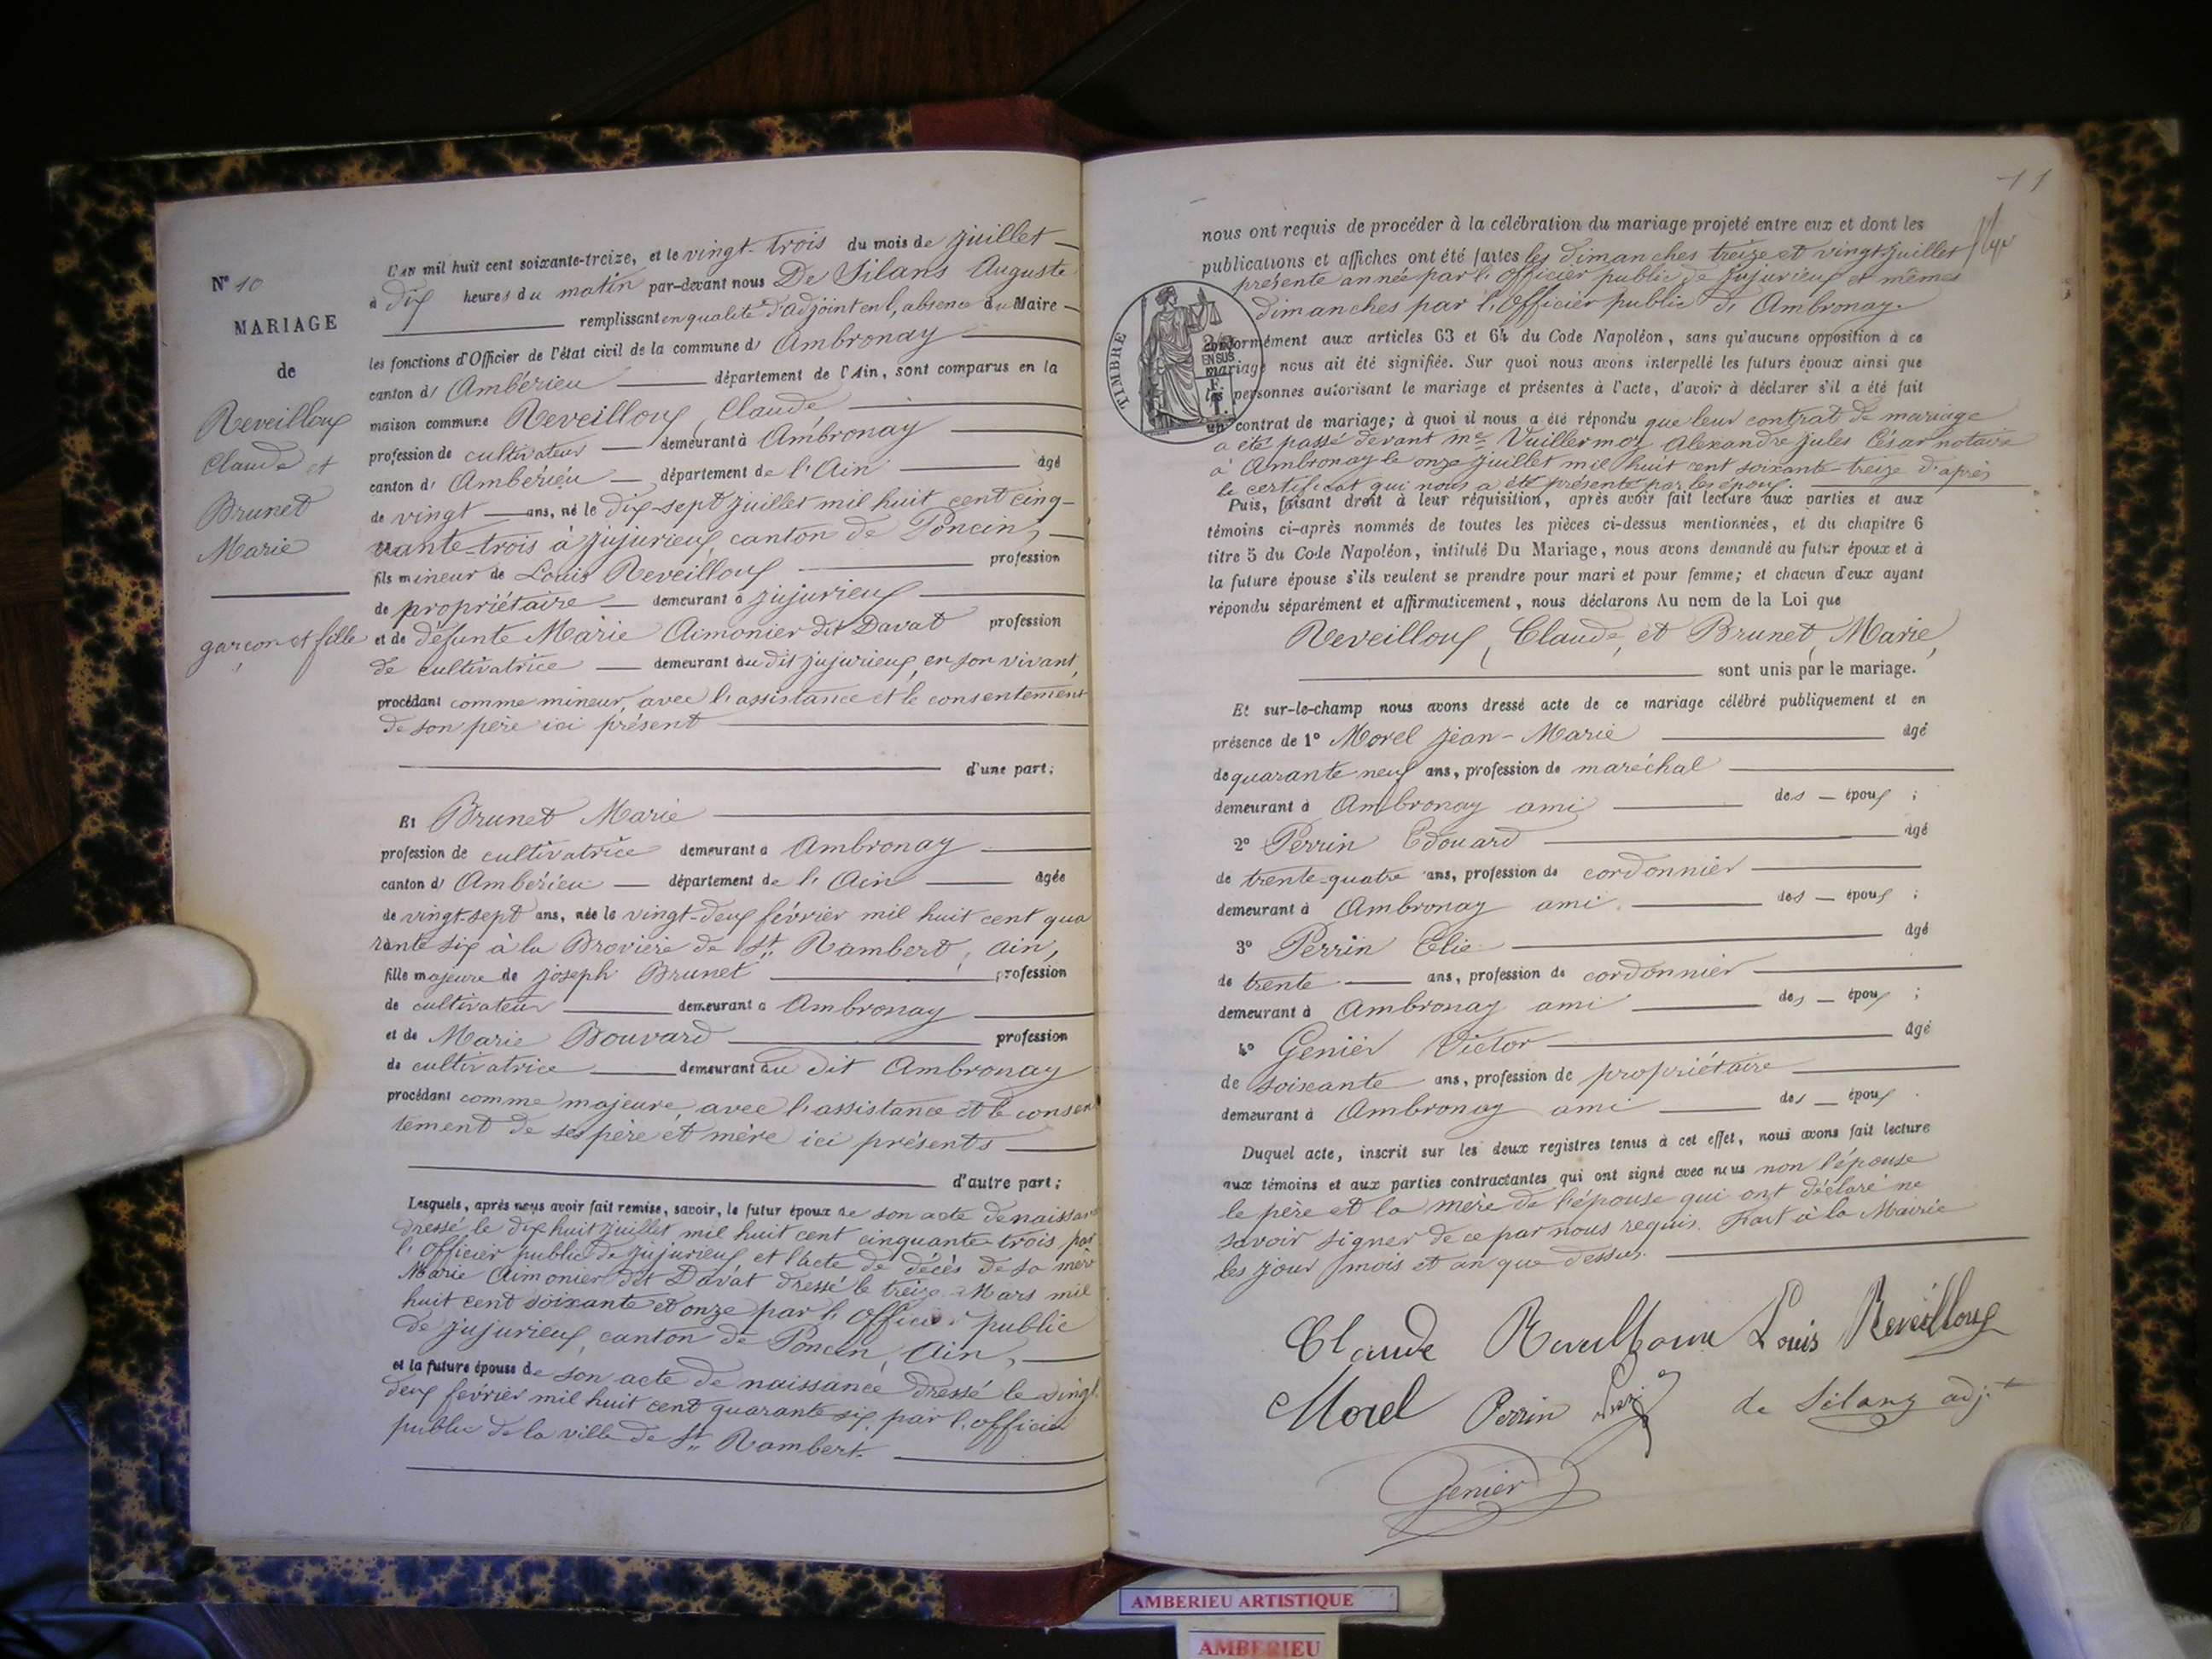 N° 10
MARIAGE
de
Reveilloux
Claude et
Brunet
Marie
garçon et fille
L'an mil huit cent soixante-treize, et le vingt-trois du mois de juillet
à dix heures du matin par-devant nous De Silans Auguste
remplissant en qualité d'adjoint en l'absence du Maire
les fonctions d'Officier de l'état civil de la commune d' Ambronay
canton d' Ambérieu département de l'Ain, sont comparus en la
maison commune Reveilloux, Claude
profession de cultivateur demeurant à Ambronay
canton d' Ambérieu département de l'Ain âgé
de vingt ans, né le dix-sept juillet mil huit cent cinq-
uante-trois à Jujurieux canton de Poncin,
fils mineur de Louis Reveilloux profession
de propriétaire demeurant à Jujurieux
et de défunte Marie Aimonier dit Davat profession
de cultivatrice demeurant au dit Jujurieux, en son vivant,
procédant comme mineur, avec l'assistance et le consentement
de son père ici présent
d'une part;
Et Brunet Marie
profession de cultivatrice demeurant à Ambronay
canton d' Ambérieu département de l'Ain âgée
de vingt-sept ans, née le vingt-deux février mil huit cent qua
rante six à la Brovière de St Rambert, Ain,
fille majeure de Joseph Brunet profession
de cultivateur demeurant à Ambronay
et de Marie Bouvard profession
de cultivatrice demeurant au dit Ambronay
procédant comme majeure, avec l'assistance et le consen
tement de ses père et mère ici présents
d'autre part;
Lesquels, après nous avoir fait remise, savoir, le futur époux de son acte de naissance
dressé le dix huit juillet mil huit cent cinquante-trois par
l'Officier public de Jujurieux et l'acte de décès de sa mère
Marie Aimonier dit Davat dressé le treize Mars mil
huit cent soixante et onze par l'Officier public
de Jujurieux, canton de Poncin, Ain,
et la future épouse de son acte de naissance dressé le vingt
deux février mil huit cent quarante six par l'officier
public de la ville de St Rambert.
11
nous ont requis de procéder à la célébration du mariage projeté entre eux et dont les
publications et affiches ont été faites les dimanches treize et vingt-juillet
présente année par l'officier public de Jujurieux et mêmes
dimanches par l'Officier public d' Ambronay.
TIMBRE
2/10
EN SUS
conformément aux articles 63 et 64 du Code Napoléon, sans qu'aucune opposition à ce
mariage nous ait été signifiée. Sur quoi nous avons interpellé les futurs époux ainsi que
les personnes autorisant le mariage et présentes à l'acte, d'avoir à déclarer s'il a été fait
un contrat de mariage; à quoi il nous a été répondu que leur contrat de mariage
a été passé devant Me Vuillermoz Alexandre Jules César notaire
à Ambronay le onze juillet mil huit cent soixante-treize d'après
le certificat qui nous a été présenté par les époux.
Puis, faisant droit à leur réquisition, après avoir fait lecture aux parties et aux
témoins ci-après nommés de toutes les pièces ci-dessus mentionnées, et du chapitre 6
titre 5 du Code Napoléon, intitulé Du Mariage, nous avons demandé au futur époux et à
la future épouse s'ils veulent se prendre pour mari et pour femme; et chacun d'eux ayant
répondu séparément et affirmativement, nous déclarons Au nom de la Loi que
Reveilloux, Claude, et Brunet, Marie,
sont unis par le mariage.
Et sur-le-champ nous avons dressé acte de ce mariage célébré publiquement et en
présence de 1° Morel Jean-Marie âgé
de quarante neuf ans, profession de maréchal
demeurant à Ambronay ami des époux ;
2° Perrin Edouard âgé
de trente-quatre ans, profession de cordonnier
demeurant à Ambronay ami des époux ;
3° Perrin Elie âgé
de trente ans, profession de cordonnier
demeurant à Ambronay ami des époux ;
4° Genier Victor âgé
de soixante ans, profession de propriétaire
demeurant à Ambronay ami des époux .
Duquel acte, inscrit sur les deux registres tenus à cet effet, nous avons fait lecture
aux témoins et aux parties contractantes qui ont signé avec nous non l'épouse
le père et la mère de l'épouse qui ont déclaré ne
savoir signer de ce par nous requis. Fait à la Mairie
les jour mois et an que dessus.
Claude Reveilloux Louis Reveilloux
Morel Perrin de Silans adjt
Genier
AMBERIEU ARTISTIQUE
AMBERIEU